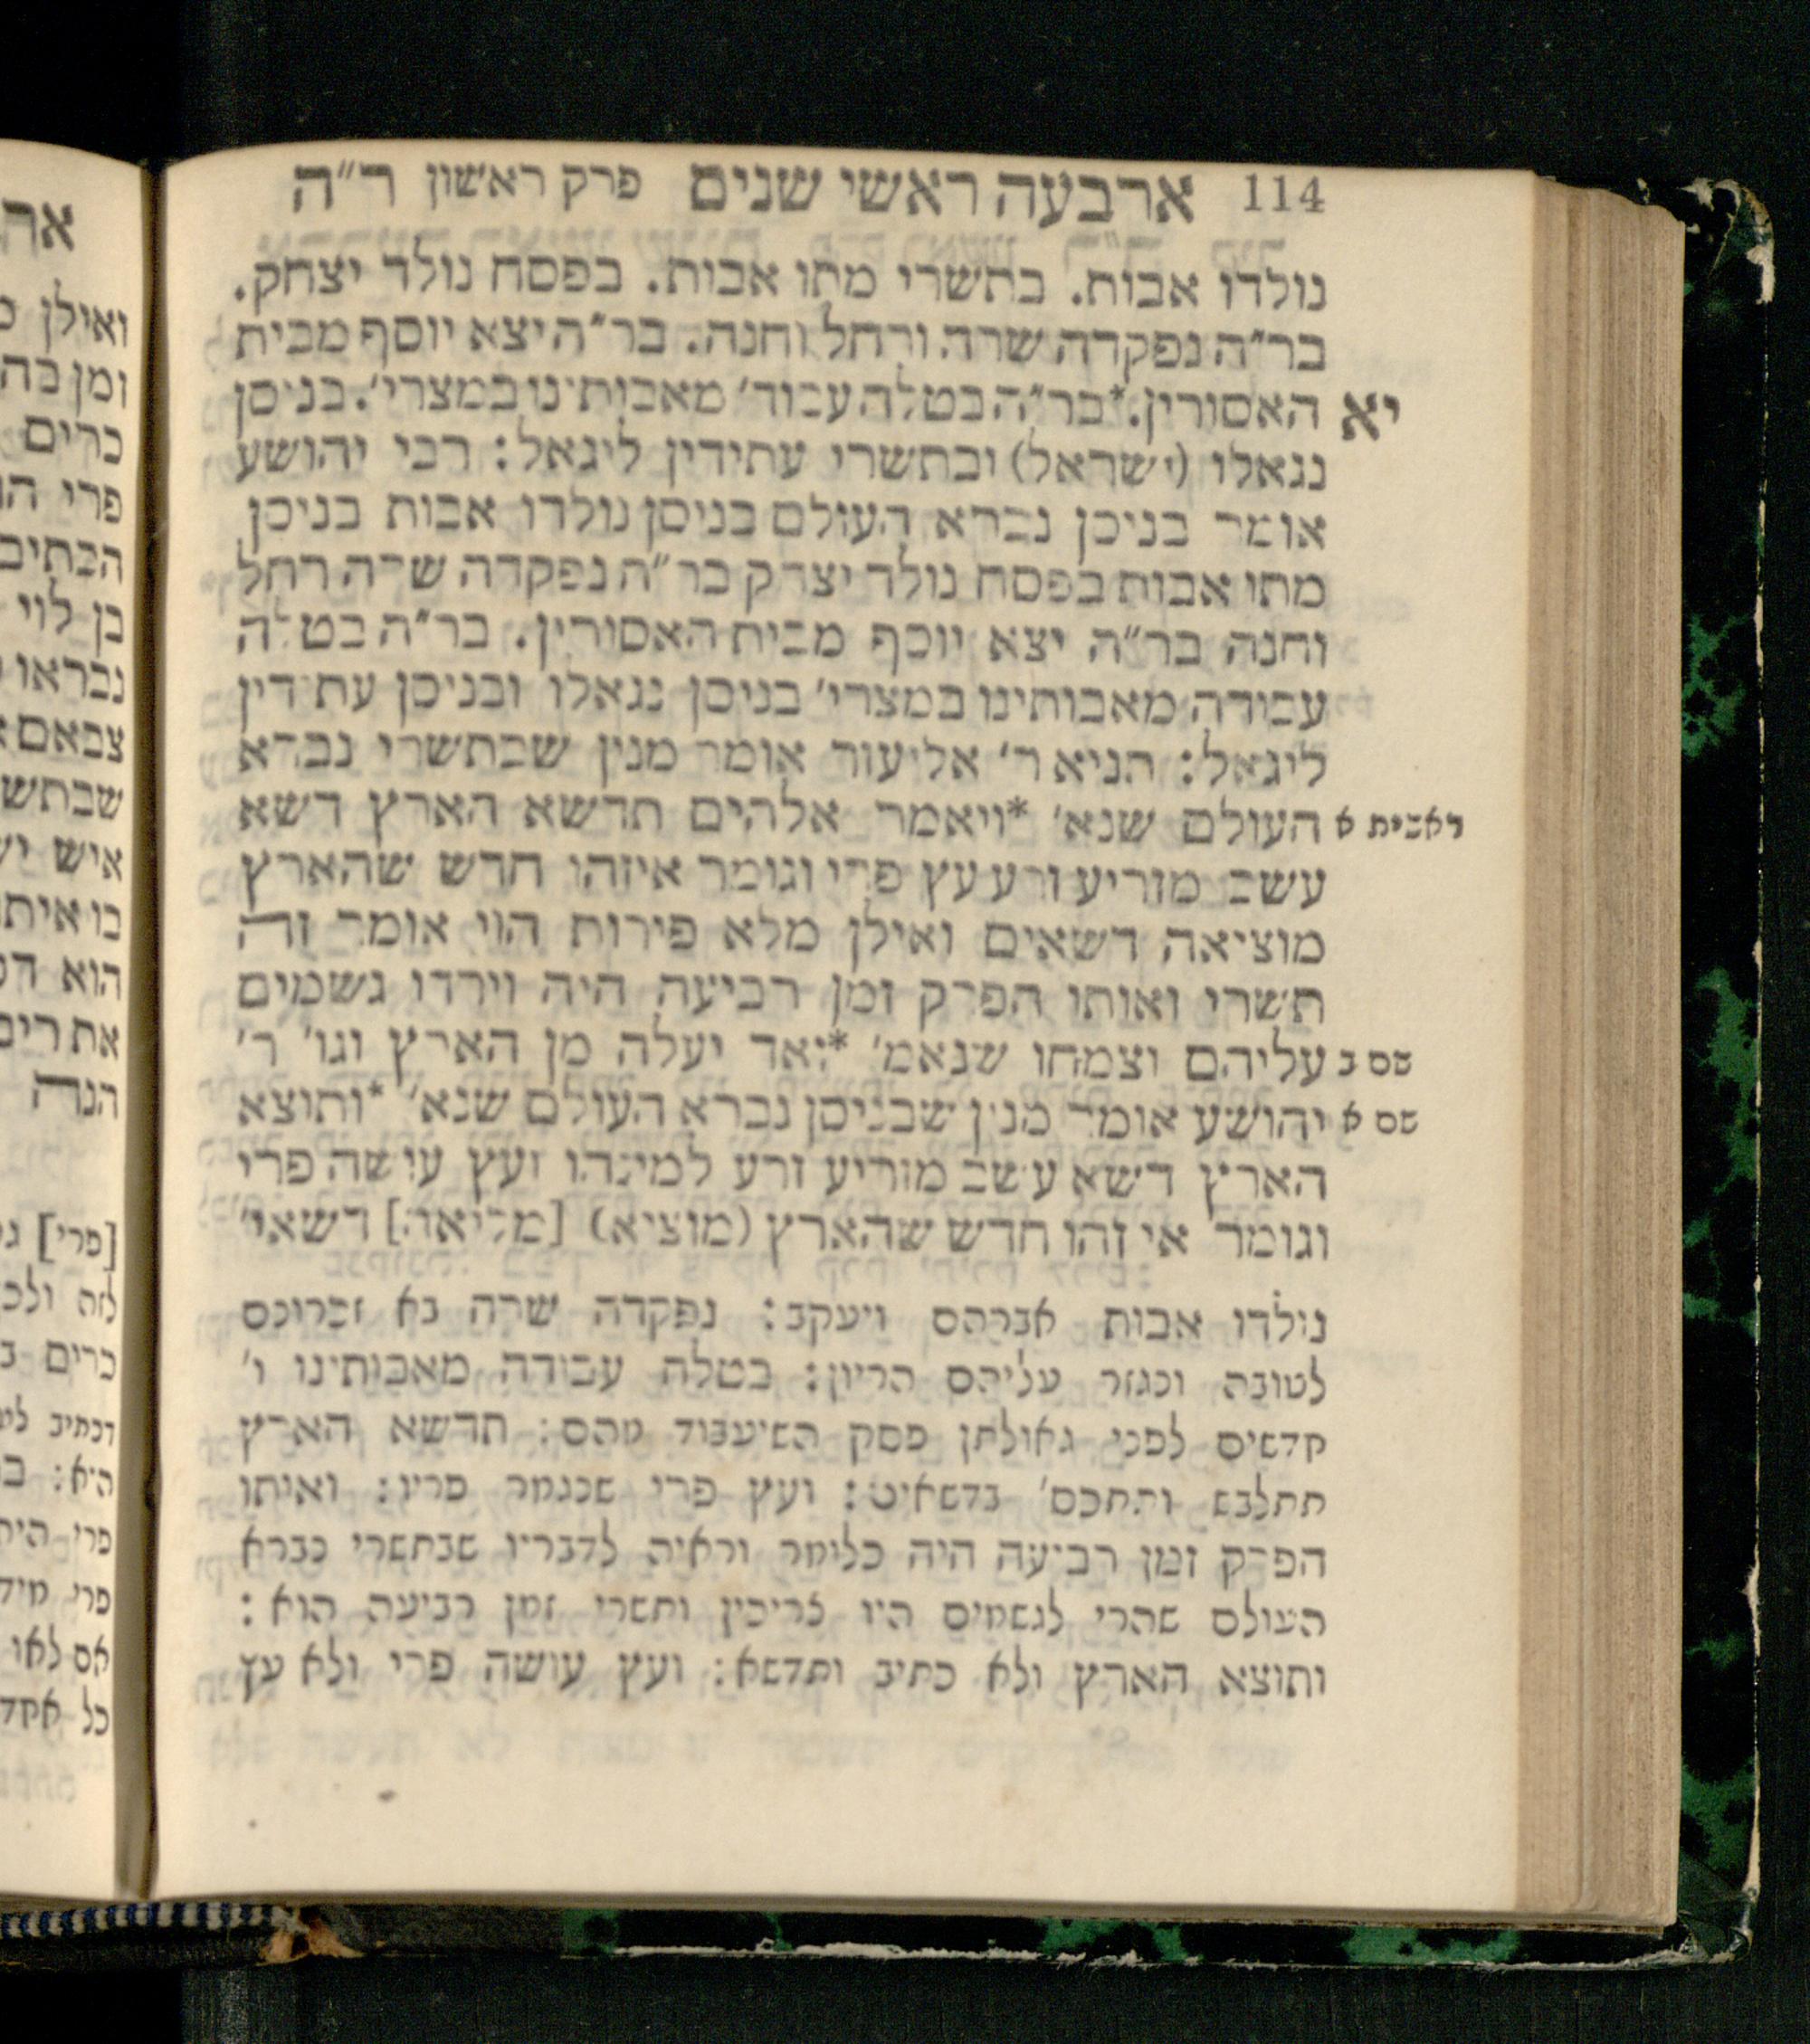 114 ארבעה ראשי שנים פרק ראשון ר״ה
נולדו אבות. בתשרי מתו אבות. בפסח נולד יצחק.
בר״ה נפקדה שרה ורחל וחנה. בר״ה יצא יוסף מבית
יא האסורין.*בר״ה בטלה עבוד׳ מאבותינו במצרי׳. בניסן
נגאלו (ישראל) ובתשרי עתידין ליגאל: רבי יהושע
אומר בניסן נברא העולם בניסן נולדו אבות בניסן
מתו אבות בפסח נולד יצחק בר״ה נפקדה שרה רחל
וחנה בר״ה יצא יוסף מבית האסורין. בר״ה בטלה
עבודה מאבותינו במצרי׳ בניסן נגאלו ובניסן עתידין
ליגאל: תניא ר׳ אליעזר אומר מנין שבתשרי נברא
ראשית א העולם שנא׳ *ויאמר אלהים תדשא הארץ דשא
עשב מזריע זרע עץ פרי וגומר איזהו חדש שהארץ
מוציאה דשאים ואילן מלא פירות הוי אומר זה
תשרי ואותו הפרק זמן רביעה היה וירדו גשמים
שם ב עליהם וצמחו שנאמ׳ *ואד יעלה מן הארץ וגו׳ ר׳
שם א יהושע אומר מנין שבניסן נברא העולם שנא׳ *ותוצא
הארץ דשא עשב מזריע זרע למינהו ועץ עושה פרי
וגומר אי זהו חדש שהארץ (מוציא) [מליאה] דשאי׳
נולדו אבות אברהם ויעקב: נפקדה שרה בא זכרונם
לטובה ונגזר עליהם הריון: בטלה עבודה מאבותינו ו׳
חדשים לפני גאולתן פסק השיעבוד מהם: תדשא הארץ
תתלבש ותתכס׳ בדשאים: ועץ פרי שנגמר פריו: ואותו
הפרק זמן רביעה היה כלומר וראיה לדבריו שבתשרי נברא
העולם שהרי לגשמים היו צריכין ותשרי זמן רביעה הוא:
ותוצא הארץ ולא כתיב ותדשא: ועץ עושה פרי ולא עץ